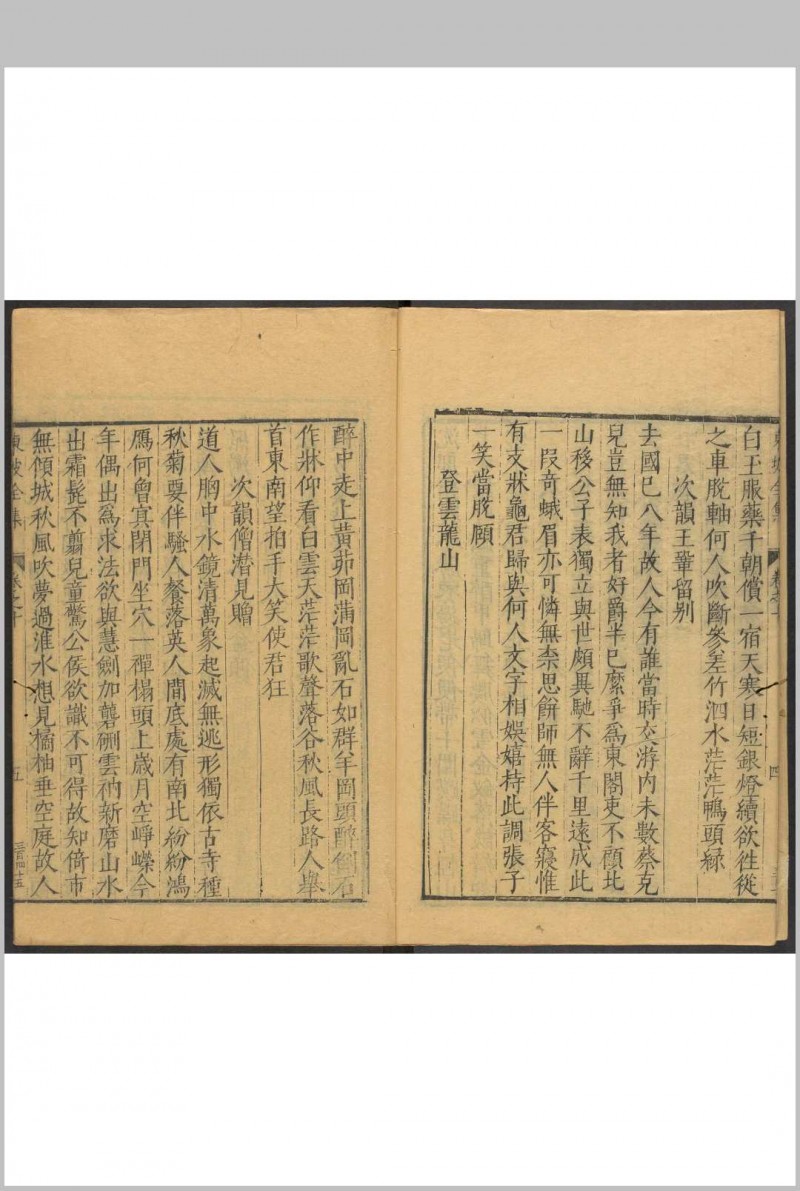 白玉服藥千朝償一宿天寒日短銀燈續欲徃從
之車脫軸何人吹斷參差竹泗水茫茫鴨頭綠
次韻王鞏留别
去國已八年故人今有誰當時交游内未數蔡克
兒豈無知我者好爵半已縻爭為東閣吏不顧北
山移公子表獨立與世頗異馳不辭千里遠成此
一叚竒蛾眉亦可憐無柰思餠師無人伴客寢惟
有支牀龜君歸與何人文字相娛嬉持此調張子
一笑當脫頥
登雲龍山
醉中走上黄茆岡蒲岡亂石如群羊岡頭醉倒石
作牀仰看白雲天茫茫歌聲落谷秋風長路人舉
首東南望拍手大笑使君狂
次韻僧潜見贈
道人胸中水鏡清萬象起滅無逃形獨依古寺種
秋菊要伴騷人餐落英人間底處有南北紛紛鴻
鴈何曾㝠閉門坐穴一禪榻頭上歳月空崢嶸今
年偶出為求法欲與慧劍加礱硎雲衲新磨山水
出霜髭不翦兒童驚公侯欲識不可得故知倚市
無傾城秋風吹夢過淮水想見橘柚垂空庭故人
東坡全集
卷之十
五